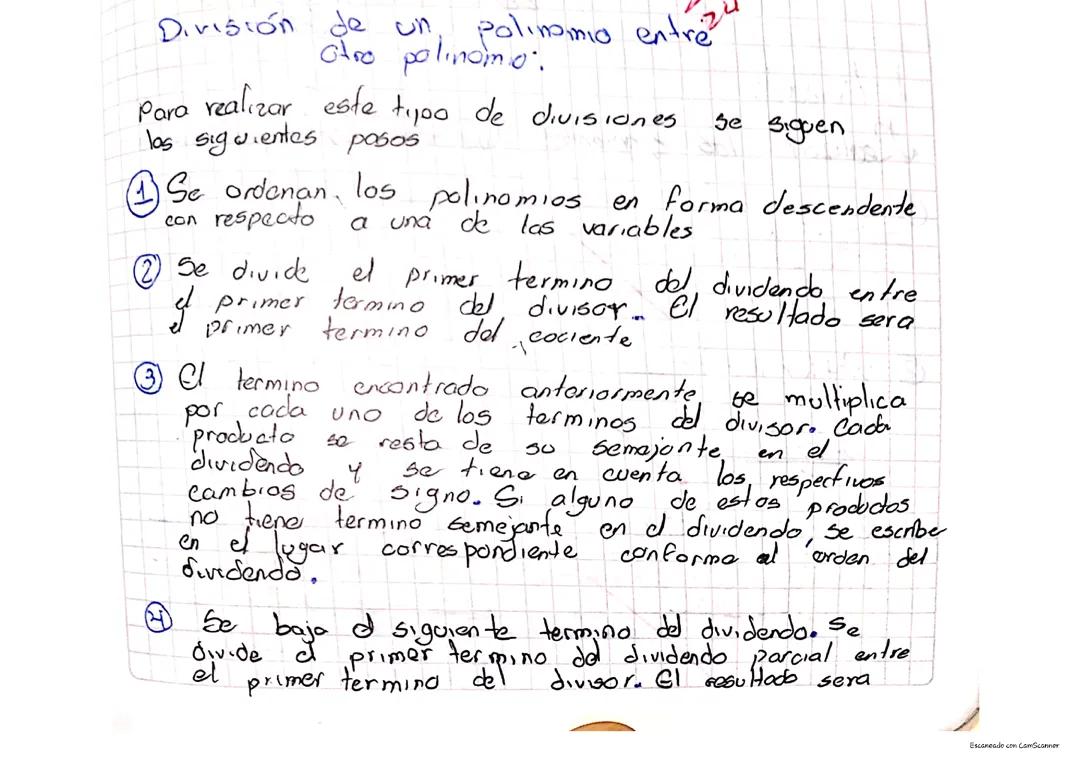 24
División de un polinomio entre
otro polinomio:
Para realizar este tipo de divisiones se siguen
los siguientes pasos
1 Se ordenan los polinomios en forma descendente
con respecto a una de las variables
2 Se divide el primer termino del dividendo entre
el primer termino del divisor. El resultado sera
el primer termino del cociente
3 El termino encontrado anteriormente se multiplica
por cada uno de los terminos del divisor. Cada
producto se resta de su semejante en el
dividendo y se tiene en cuenta los respectivos
cambios de signo. Si alguno de estos productos
no tiene termino semejante en el dividendo, se escribe
en el lugar correspondiente conforme al orden del
dividendo.
4 Se baja el siguiente termino del dividendo. Se
divide el primer termino del dividendo parcial entre
el primer termino del divisor. El resultado sera
Escaneado con CamScanner